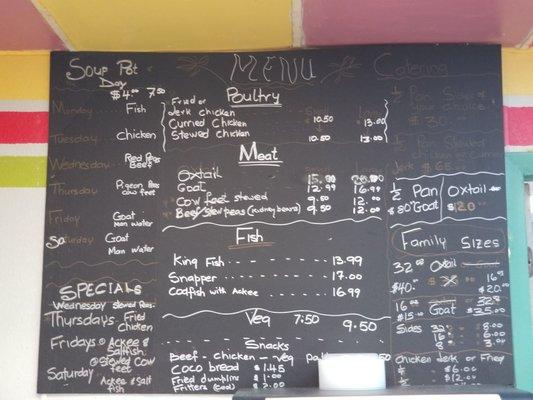 MENU
Soup Pot
Day
$4.00 7.50
Monday Fish
Tuesday Chicken
Wednesday Red Peas
Beef
Thursday Pigeon Peas
Cow feet
Friday Goat
Man water
Saturday Goat
Man water
SPECIALS
Wednesday Stewed Peas
Thursdays Fried
Chicken
Fridays @ Ackee &
Saltfish
@ Stewed Cow
feet
Saturday Ackee & Salt
fish
Poultry
Fried or
Jerk Chicken
Curried Chicken 10.50 13.00
Stewed Chicken 10.50 13.00
Meat
Oxtail
Goat 12.99 16.99
Cow feet stewed 9.50 12.00
Beef stew peas (kidney beans) 9.50 12.00
Fish
King Fish 13.99
Snapper 17.00
Codfish with Ackee 16.99
Veg 7.50 9.50
Snacks
Beef - chicken - veg
Coco bread $1.45
Fried dumplins $1.00
Fritters (cod)
Catering
½ Pan
Oxtail
$80 Goat
Family Sizes
32oz Oxtail
$40.00 $20.00
16oz Goat 32oz
$15.00 $25.00
Sides 32oz 8.00
16 6.00
8 3.00
Chicken Jerk or Fried
$6.00
$12.00